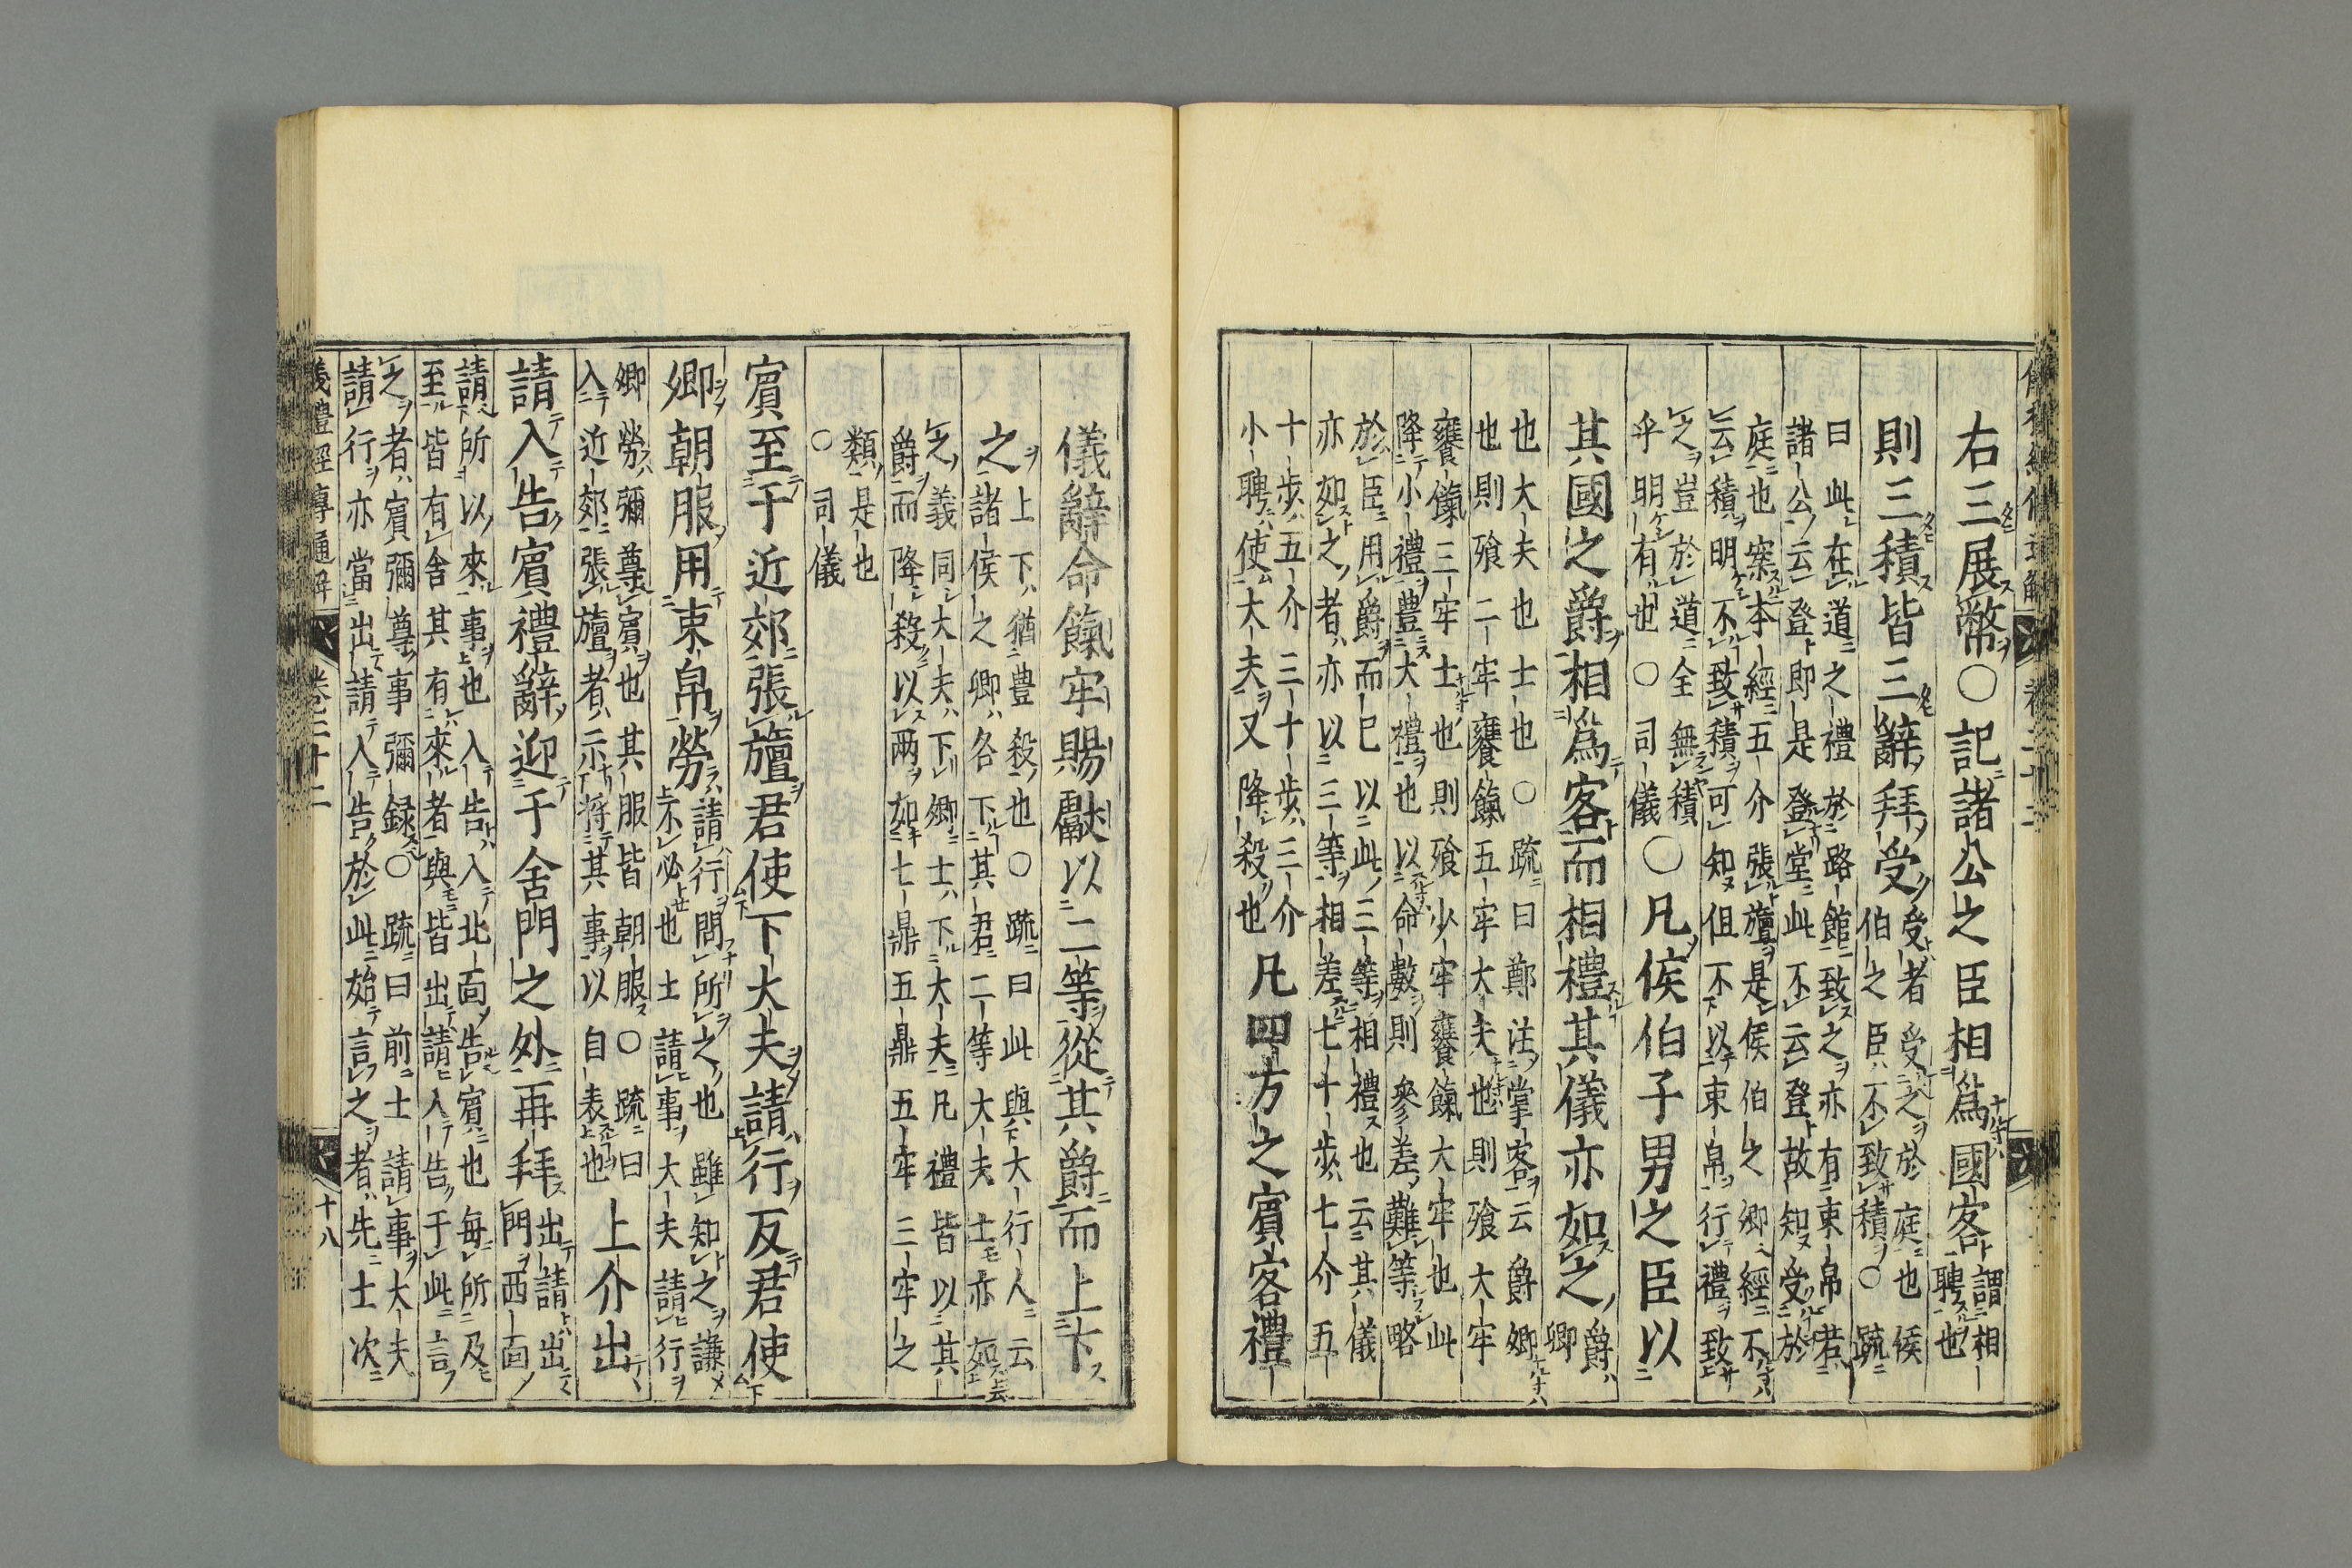 右三展幣〇記諸公之臣相爲國客謂相
聘也
則三積皆三辭拜受受者受之於庭也侯
伯之臣不致積〇疏
曰此在道之禮於路館致之亦有束帛若
諸公云登即是登堂此不云登故知受於
庭也案本經五介張旜是侯伯之卿經不
云積明不致積可知但不以束帛行禮致
之豈於道全無積
乎明有也〇司儀〇凡侯伯子男之臣以
其國之爵相爲客而相禮其儀亦如之爵
卿
也大夫也士也〇疏曰鄭注掌客云爵卿
也則飧二牢饔餼五牢大夫也則飧大牢
饔餼三牢士也則飧少牢饔餼大牢也此
降小禮豐大禮也以命數則參差難等略
於臣用爵而已以此三等相禮也云其儀
亦如之者亦以三等相差七十步七介五
十步五介三十步三介
小聘使大夫又降殺也凡四方之賓客禮
儀辭命餼牢賜獻以二等從其爵而上下
之上下猶豊殺也〇疏曰此與大行人云
諸侯之卿各下其君二等大夫士亦如
之義同大夫下卿士下大夫凡禮皆以其
爵而降殺以两如七鼎五鼎五牢三牢之
類是也
〇司儀
賓至于近郊張旜君使下大夫請行反君使
卿朝服用束帛勞請行問所之也雖知之謙
不必也士請事大夫請行
卿勞彌尊賓也其服皆朝服〇疏曰
入近郊張旜者示將其事以自表也上介出
請入告賓禮辭迎于舍門之外再拜出請出
門西面
請所以來事也入告入北面告賓也每所及
至皆有舍其有來者與皆出請入告于此言
之者賓彌尊事彌録〇疏曰前士請事大夫
請行亦當出請入告於此始言之者先士次
儀禮經傳通解 卷二十二 十八